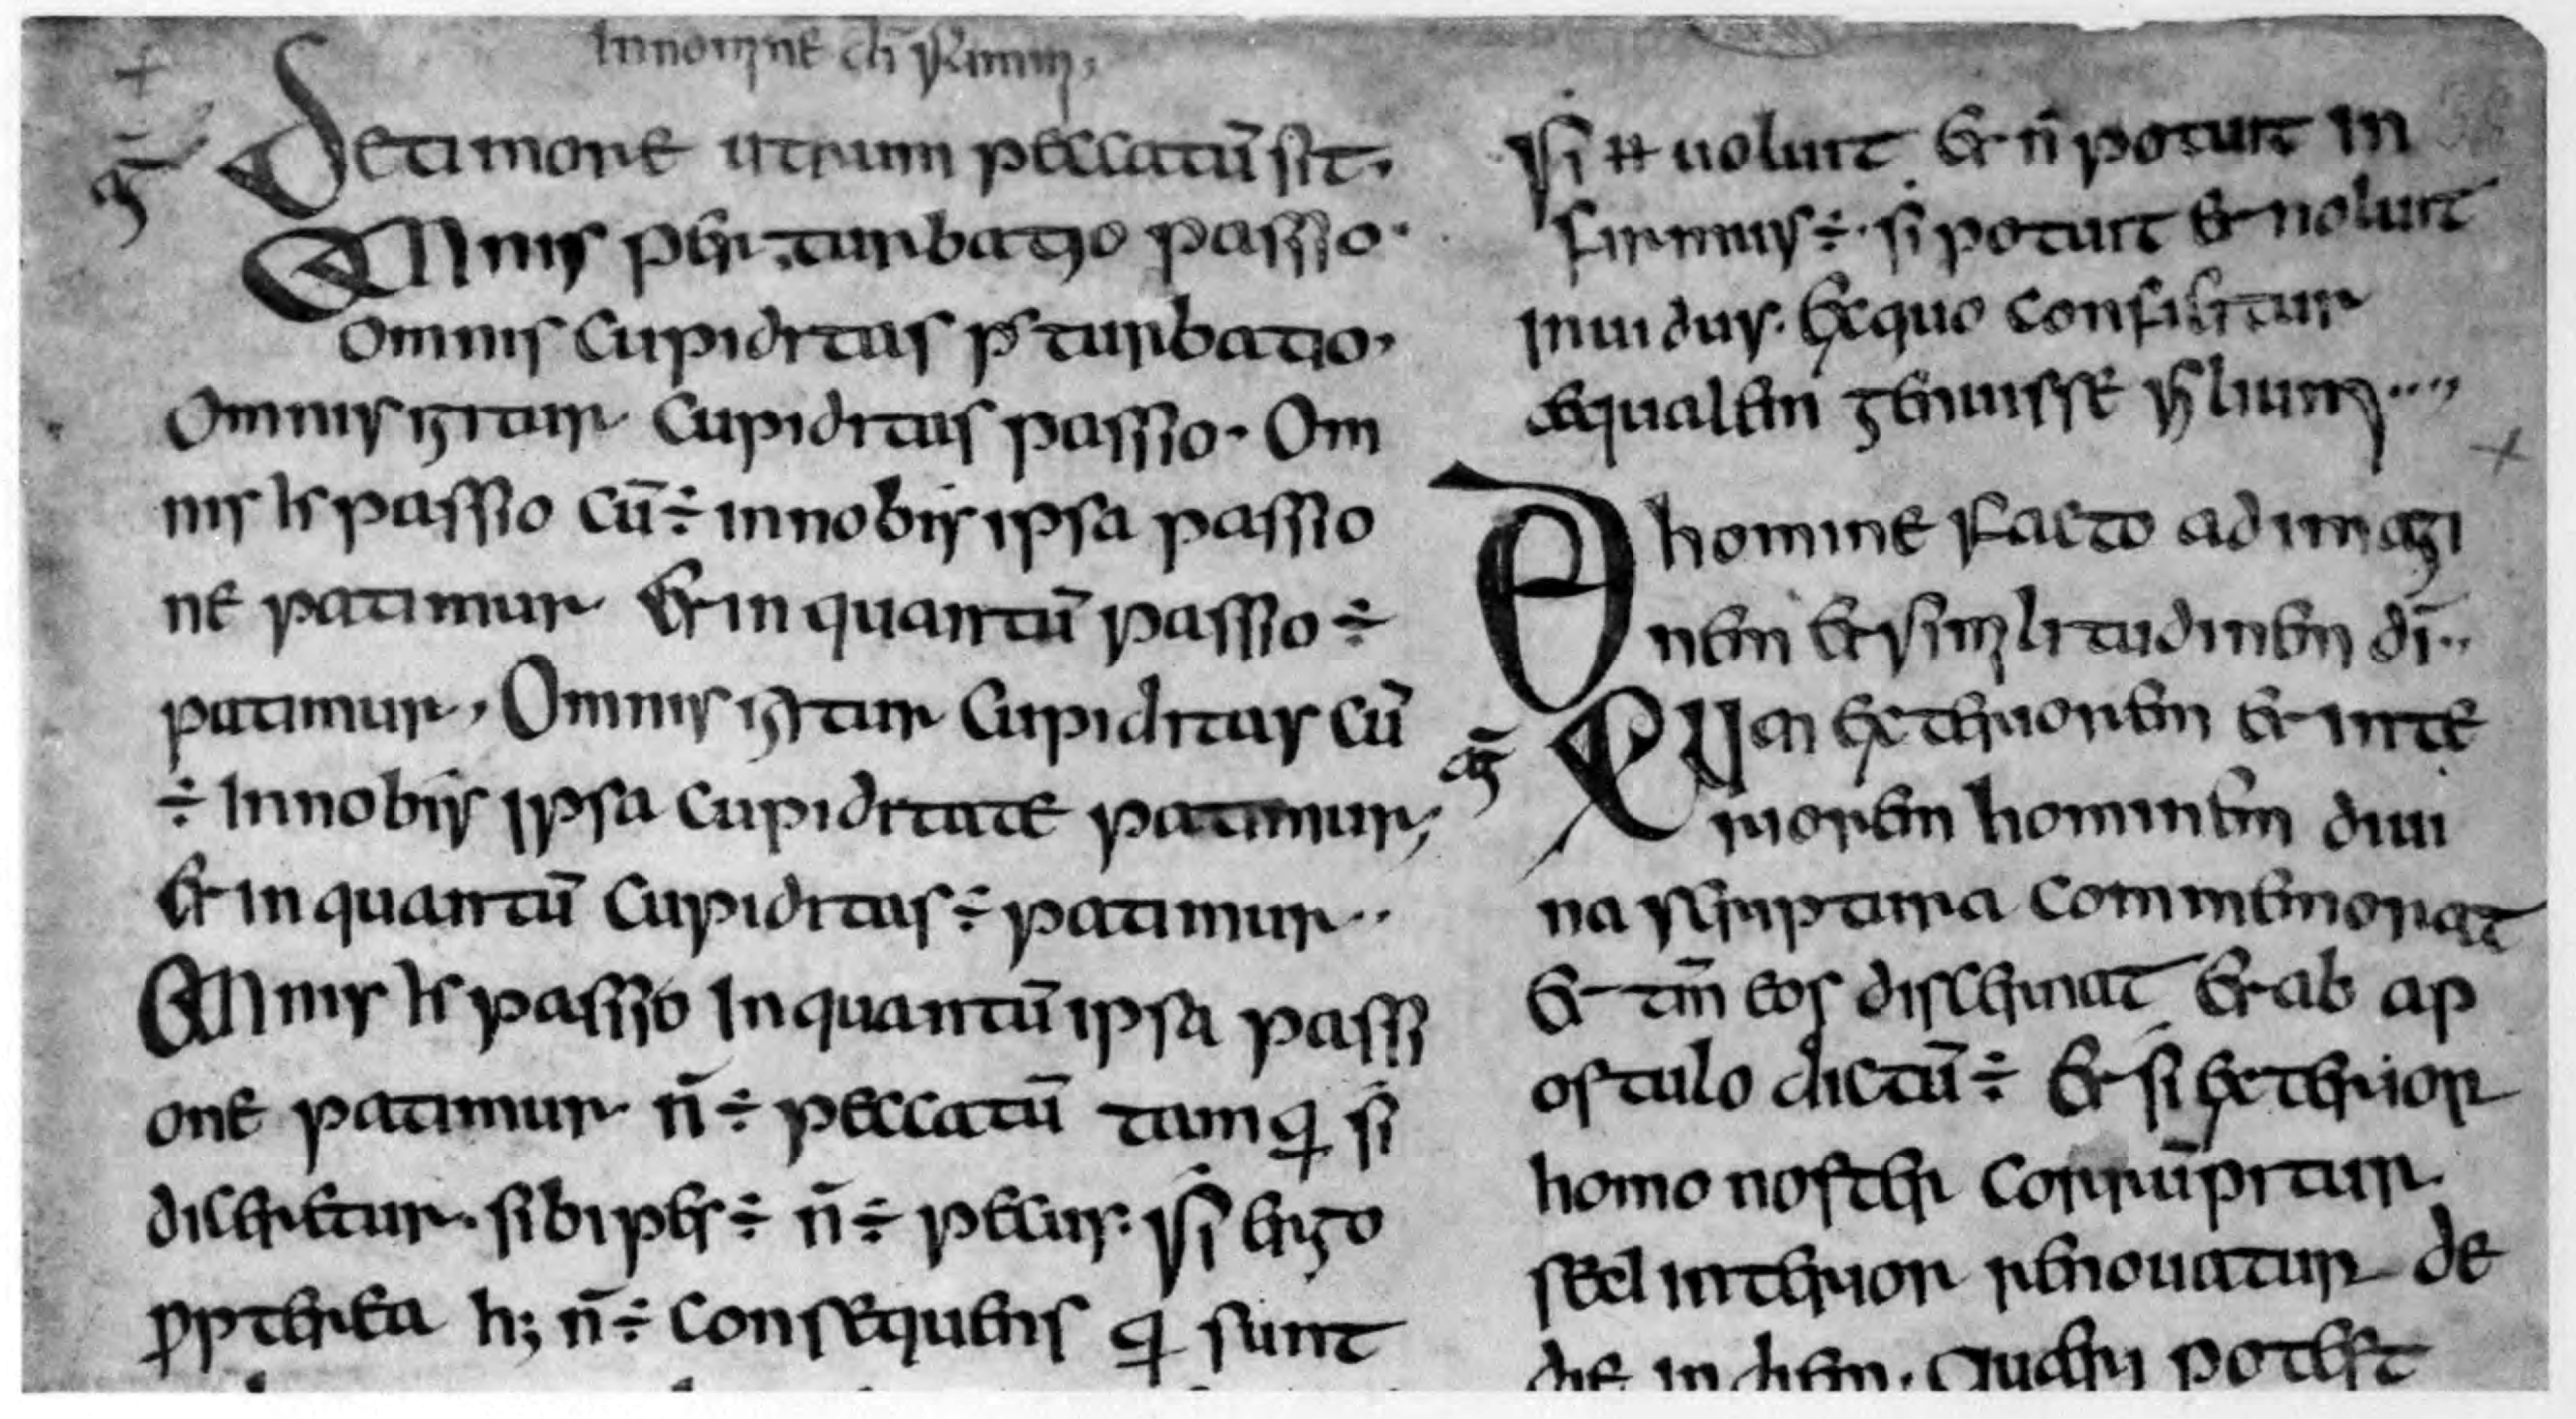 Innomine dī summi,
De timore utrum peccatū sit,
Omnis per turbatio passio.
omnis cupiditas p̄ turbatio,
Omnis igitur cupiditas passio. Om
nis ɦ passio cū ÷ innobis ipsa passio
ne patimur & in quantū passio ÷
patimur, Omnis igitur cupiditas cū
÷ Innobis ipsa cupiditate patimur,
& in quantū cupiditas ÷ patimur..
Omnis ɦ passio Inquantū ipsa passi
one patimur n̄ ÷ peccatū tamq̣ si
diceretur. si bipes ÷ n̄ ÷ pecus. si ergo
ꝓpterea h; n̄ ÷ consequens q̣ sunt
si ⧺ uoluit & n̄ potuit in
firmus ÷. si potuit & noluit
inuidus. exquo conficitur
aequalem genuisse filium..,,
De homine facto ad imagi
nem & similitudinem dī..
Cum exteriorem & inte
riorem hominem diui
na scriptura commemorat
& tm̄ eos discernat & ab ap
ostulo dictū ÷ & si exterior
homo noster corrūpitur.
sed interior renouatur de
die in diem. queri potest